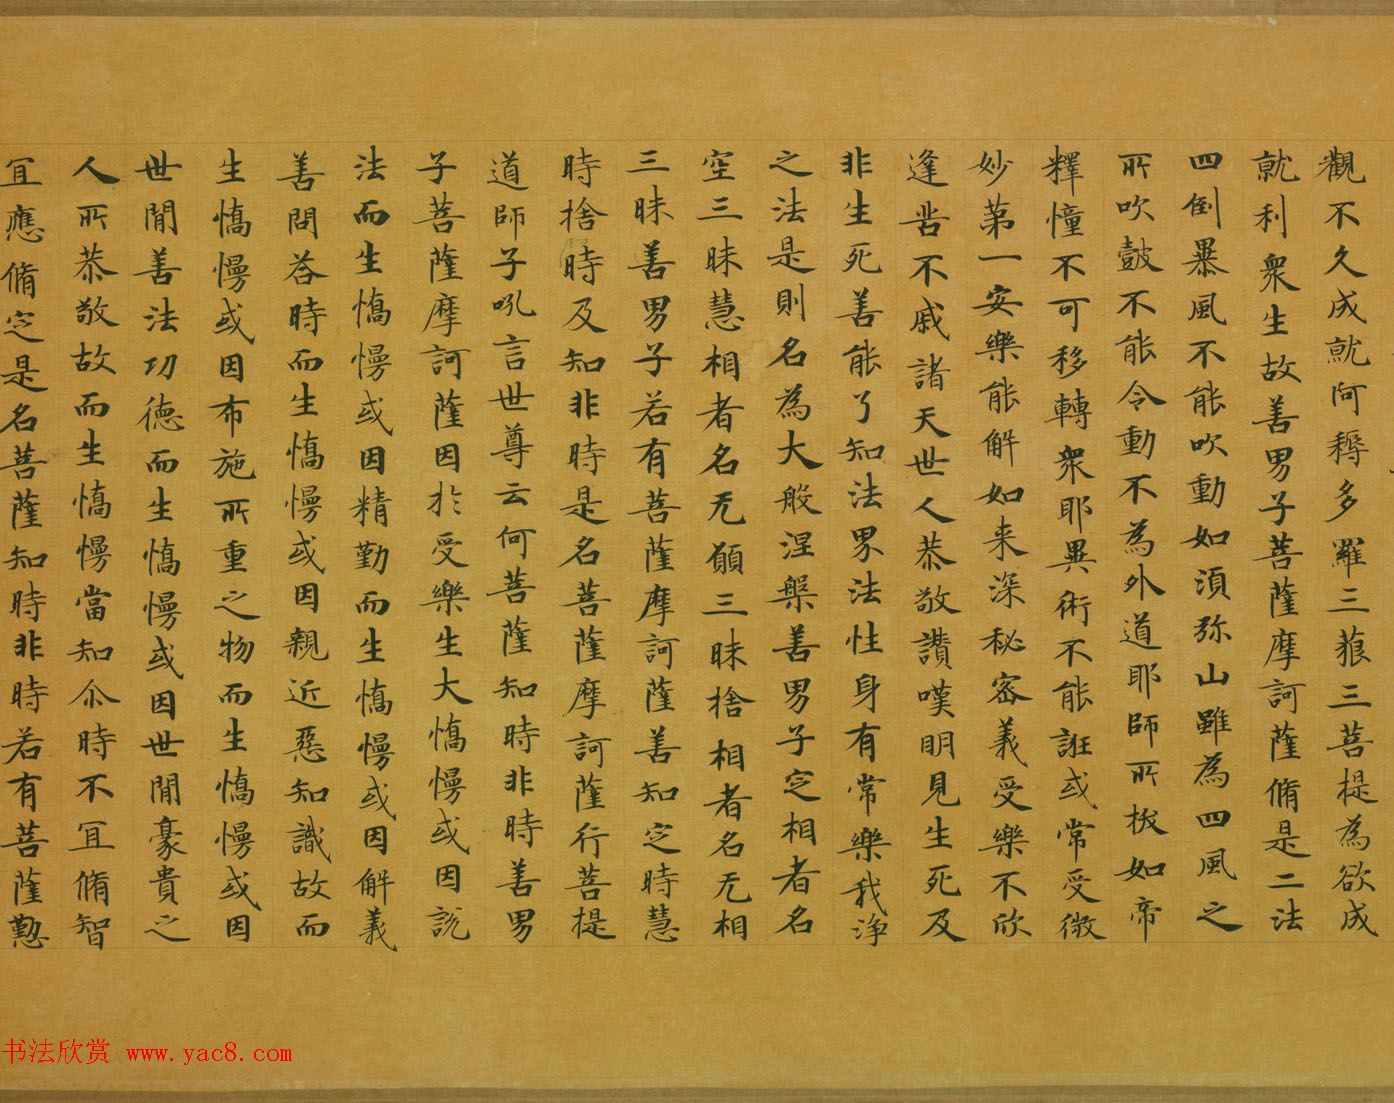 觀不久成就阿耨多羅三藐三菩提為欲成
就利衆生故善男子菩薩摩訶薩脩是二法
四倒暴風不能吹動如湏弥山雖為四風之
所吹皷不能令動不為外道耶師所拔如帝
釋憧不可移轉衆耶異術不能誑或常受微
妙第一安樂能解如来深秘密義受樂不欣
逢苦不戚諸天世人恭敬讃嘆明見生死及
非生死善能了知法界法性身有常樂我淨
之法是則名為大般涅槃善男子定相者名
空三昧慧相者名无願三昧捨相者名无相
三昧善男子若有菩薩摩訶薩善知定時慧
時捨時及知非時是名菩薩摩訶薩行菩提
道師子吼言世尊云何菩薩知時非時善男
子菩薩摩訶薩因於受樂生大憍慢或因說
法而生憍慢或因精勤而生憍慢或因解義
善問荅時而生憍慢或因親近惡知識故而
生憍慢或因布施所重之物而生憍慢或因
世間善法功德而生憍慢或因世間豪貴之
人所恭敬故而生憍慢當知尒時不冝脩智
冝應脩定是名菩薩知時非時若有菩薩懃
书法欣赏 www.yac8.com